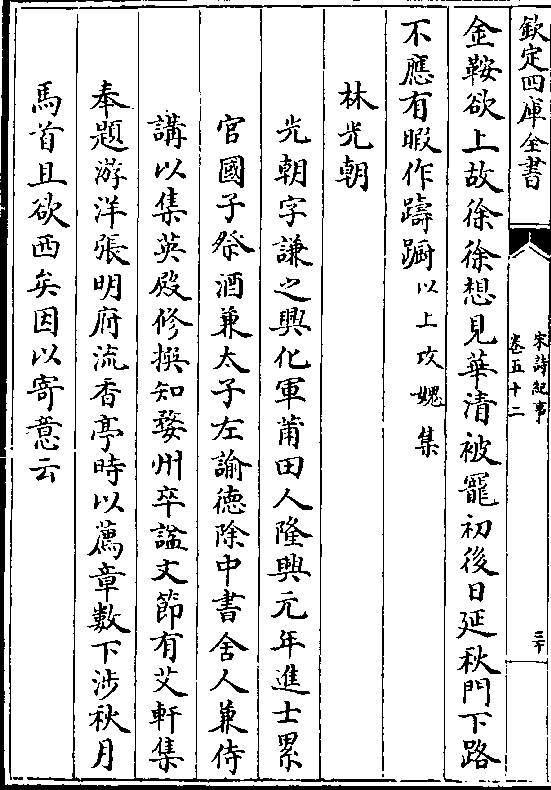 欽定四庫全書
宋詩紀事
卷五十二
三十
金鞍欲上故徐徐想見華清被寵初後日延秋門下路
不應有暇作躊躕以上攻媿集
林光朝
光朝字謙之興化軍莆田人隆興元年進士累
官國子祭酒兼太子左諭德除中書舍人兼侍
講以集英殿修撰知婺州卒諡文節有艾軒集
奉題游洋張明府流香亭時以薦章數下涉秋月
馬首且欲西矣因以寄意云